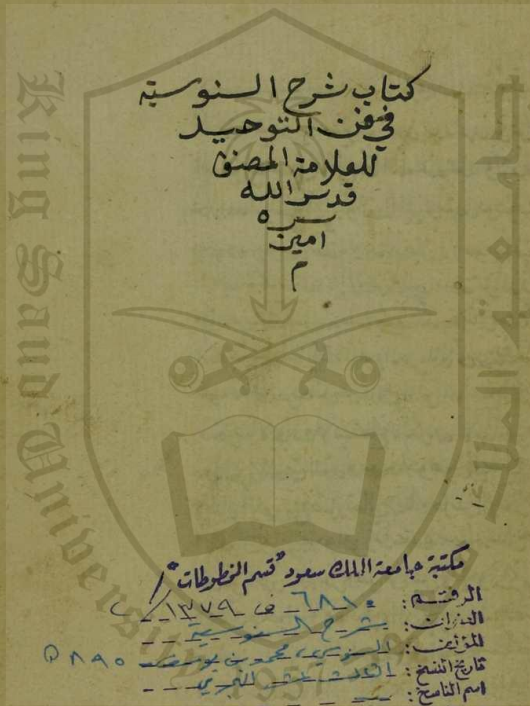 كتاب شرح السنوسية
في فن التوحيد
للعلامة المصنف
قدس الله
سره
امين
م
King Saud University
جامعة الملك سعود
1957
مكتبة جامعة الملك سعود "قسم المخطوطات"
الرقم: ٦٨١٠ ف ١٣٧٩ /
العنوان: شرح السنوسية
المؤلف: السنوسي، محمد بن يوسف - ٨٩٥ ه
تاريخ النسخ: الثالث عشر الهجري
اسم الناسخ: --